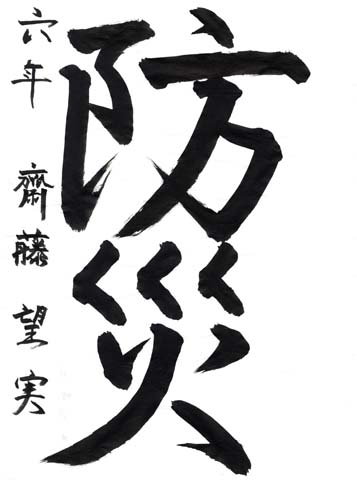 防災
六年 齋藤 望実